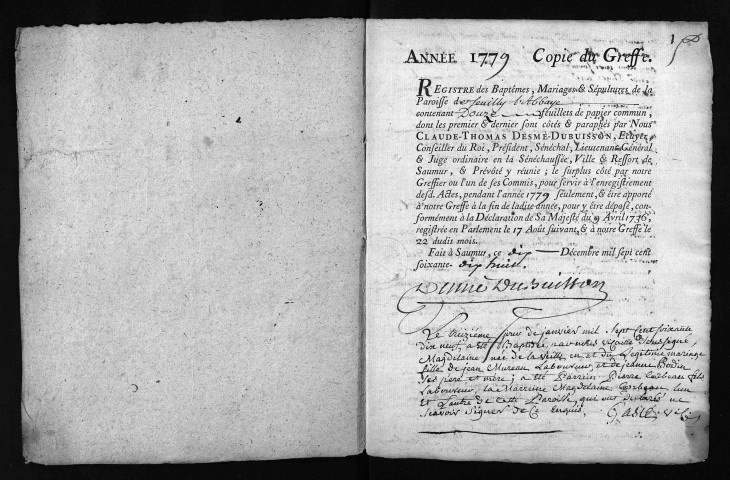 1
ANNÉE 1779 Copie du Greffe.
REGISTRE des Baptêmes, Mariages & Sépultures de la
Paroisse de l'Abbaye
contenant Douze feuillets de papier commun,
dont les premier & dernier sont côtés & paraphés par Nous
CLAUDE-THOMAS DESMÉ-DUBUISSON, Ecuyer,
Conseiller du Roi, Président, Sénéchal, Lieutenant Général
& Juge ordinaire en la Sénéchaussée, Ville & Ressort de
Saumur, & Prévôté y réunie; le surplus côté par notre
Greffier ou l'un de ses Commis, pour servir à l'enregistrement
desd. Actes, pendant l'année 1779 seulement, & être apporté
à notre Greffe à la fin de ladite année, pour y être déposé, con-
formément à la Déclaration de Sa Majesté du 9 Avril 1736,
registrée en Parlement le 17 Août suivant, & à notre Greffe le
22 dudit mois.
Fait à Saumur, ce dix Décembre mil sept cent
soixante dix huit.
Desmé Dubuisson
Le treizième jour de janvier mil sept cent soixante
dix neuf, a été Baptisée par nous vicaire soussigné
Magdelaine née de la veille en et du légitime mariage
fille de jean Mureau Laboureur, et de jeanne Bodin
ses pere et mère; a été Parrein Pierre fils
Laboureur, la Marreine Magdelaine l'un
et l'autre de cette Paroisse, qui ont déclaré ne
scavoir signer de ce enquis.